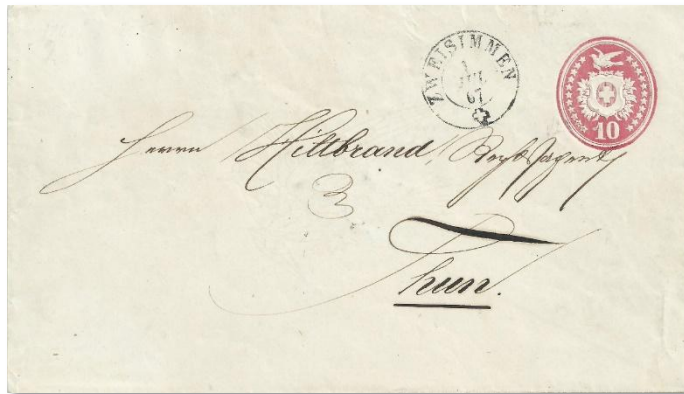 ZWEISIMMEN
1
JUL
67
10
Herrn Hiltbrand, Rechtsagent
Thun.